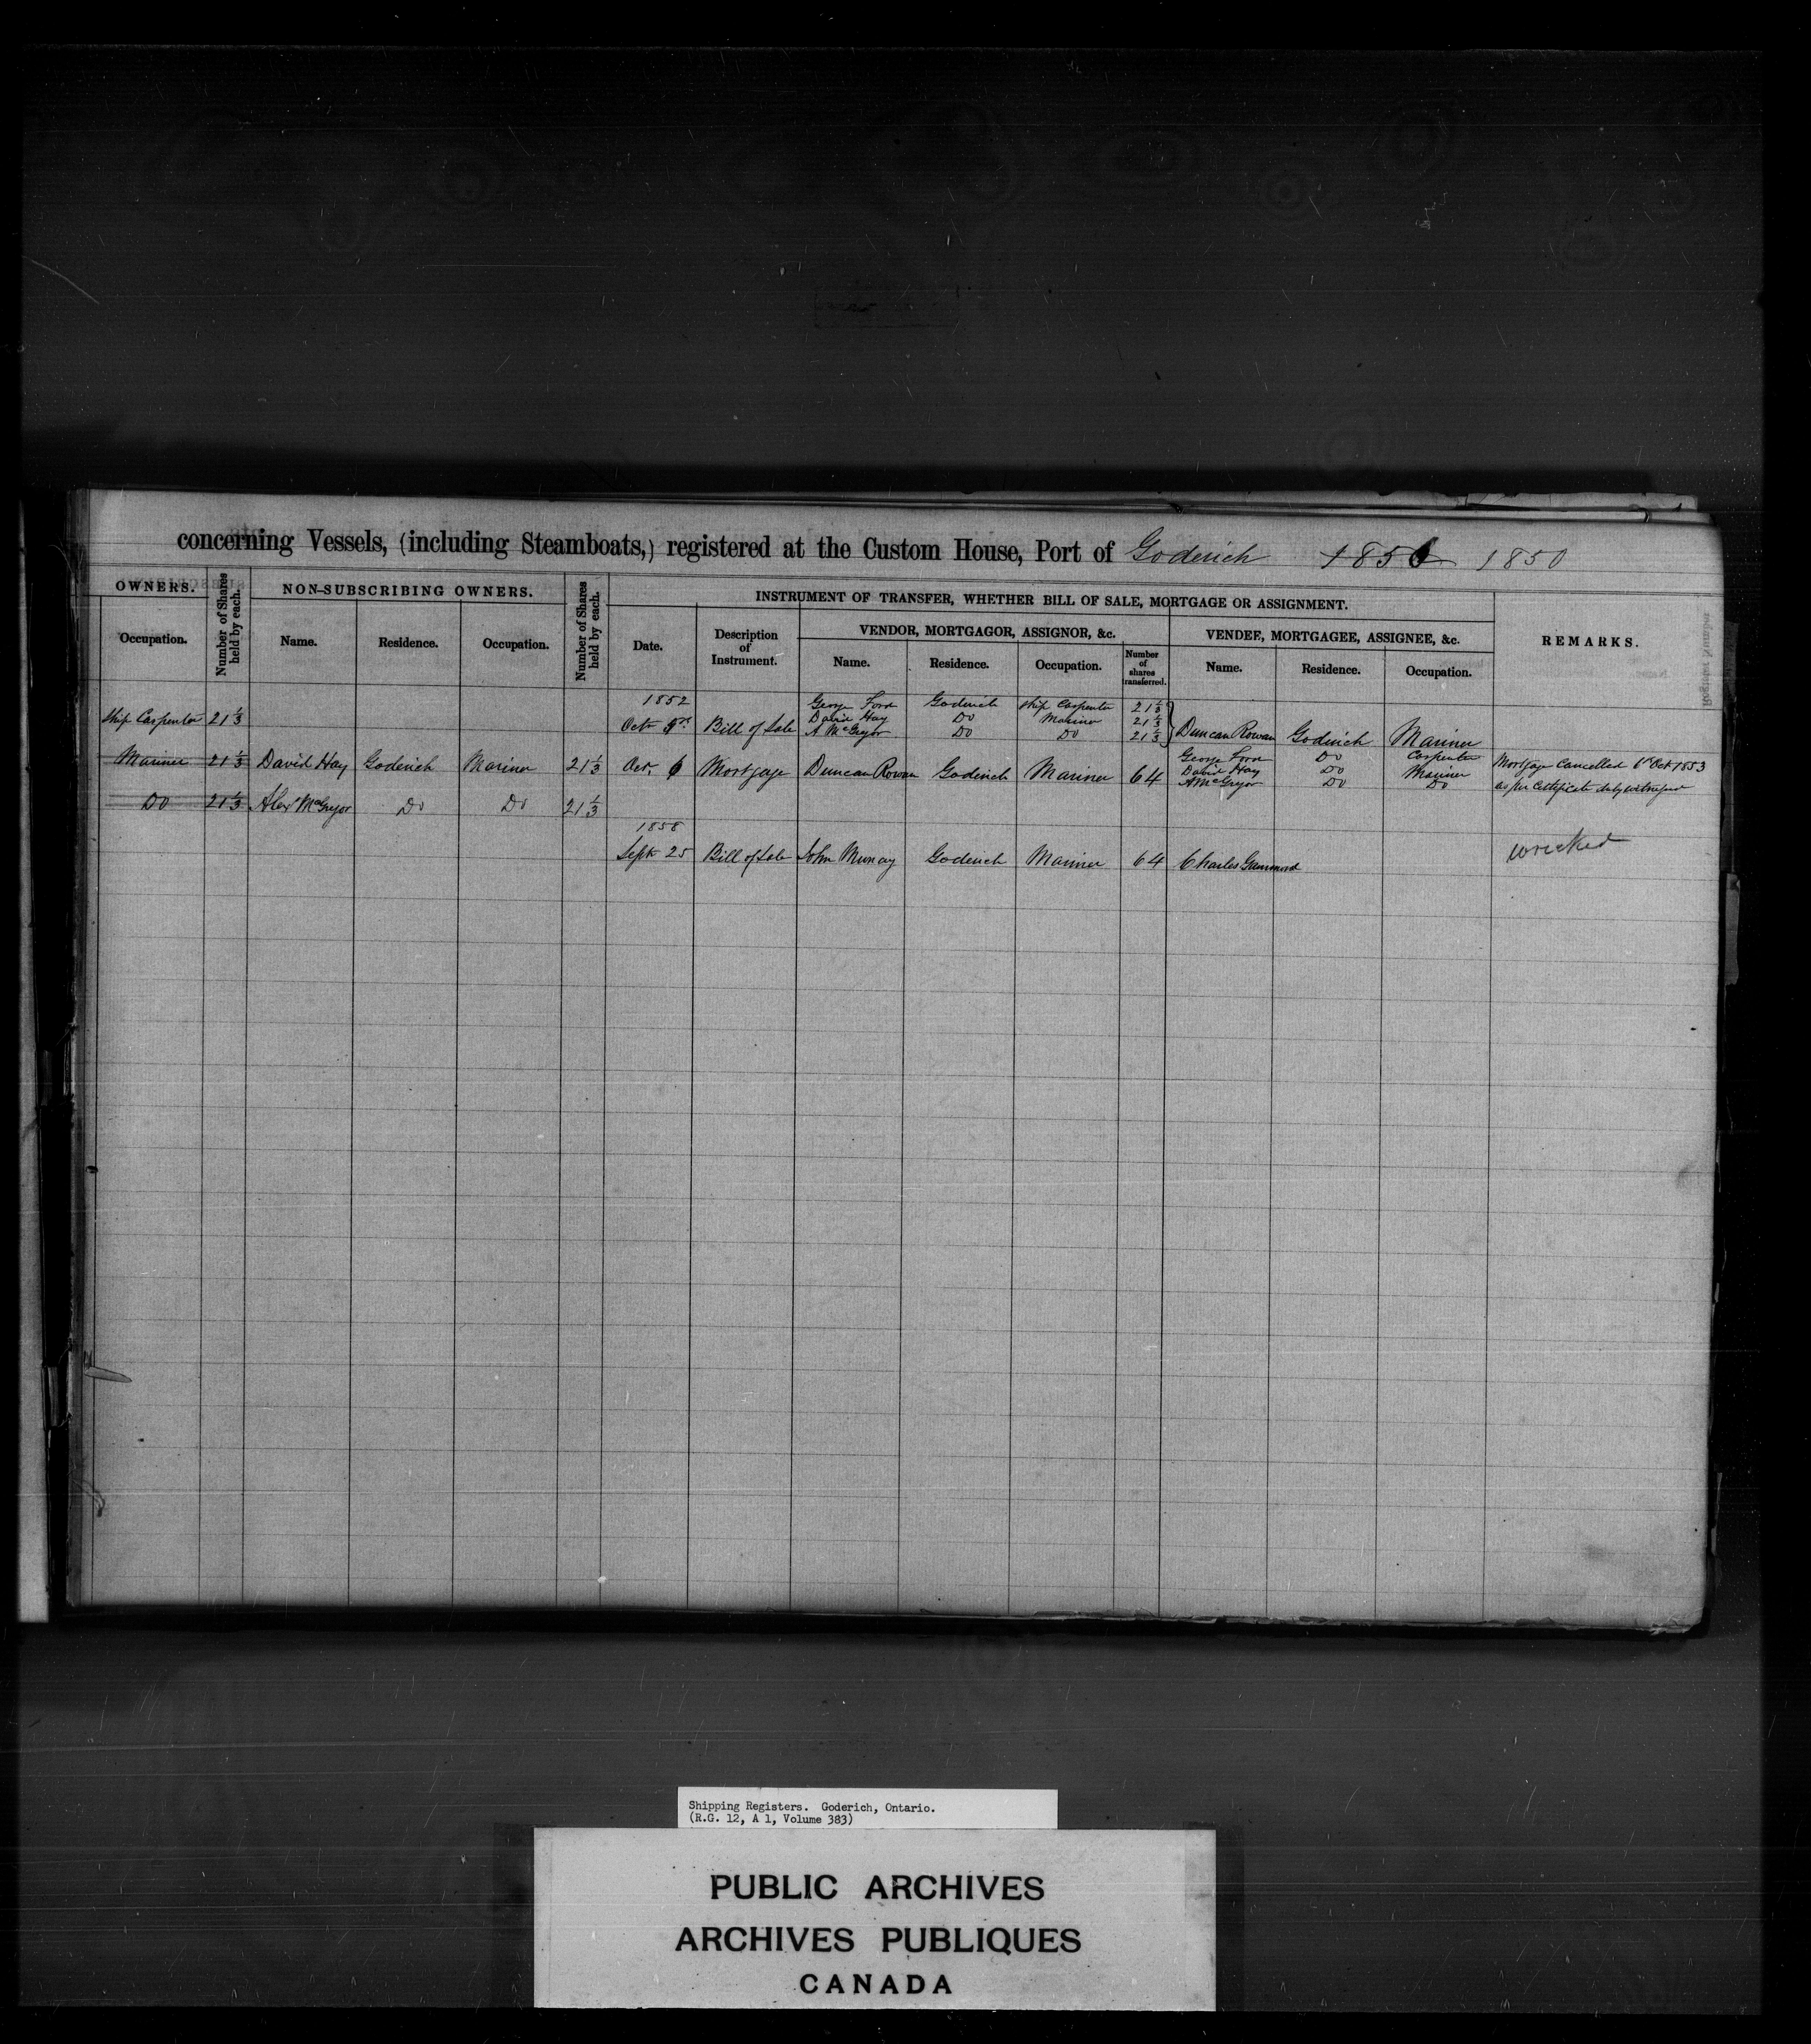 concerning Vessels, (including Steamboats,) registered at the Custom House, Port of Goderich 1851 1850
OWNERS. Number of Shares held by each. NON-SUBSCRIBING OWNERS. Number of Shares held by each. INSTRUMENT OF TRANSFER, WHETHER BILL OF SALE, MORTGAGE OR ASSIGNMENT. REMARKS.
VENDOR, MORTGAGOR, ASSIGNOR, &c. VENDEE, MORTGAGEE, ASSIGNEE, &c.
Occupation. Name. Residence. Occupation. Date. Description of Instrument. Name. Residence. Occupation. Number of shares transferred. Name. Residence. Occupation.
1852 George Ford Goderich Ship Carpenter 21 1/3
Ship Carpenter 21 1/3 David Hay Do Mariner 21 1/3
Octr Bill of Sale A McGregor Do Do 21 1/3 Duncan Rowan Goderich Mariner
George Ford Do Carpenter
Mariner 21 1/3 David Hay Goderich Mariner 21 1/3 Oct, 6 Mortgage Duncan Rowan Goderich Mariner 64 David Hay Do Mariner Mortgage Cancelled 6th Oct 1853
A McGregor Do Do as per Certificate duly witnessed
Do 21 1/3 Alexr McGregor Do Do 21 1/3
1858
Sept 25 Bill of Sale John Murray Goderich Mariner 64 Charles wrecked
Shipping Registers. Goderich, Ontario.
(R.G. 12, A 1, Volume 383)
PUBLIC ARCHIVES
ARCHIVES PUBLIQUES
CANADA